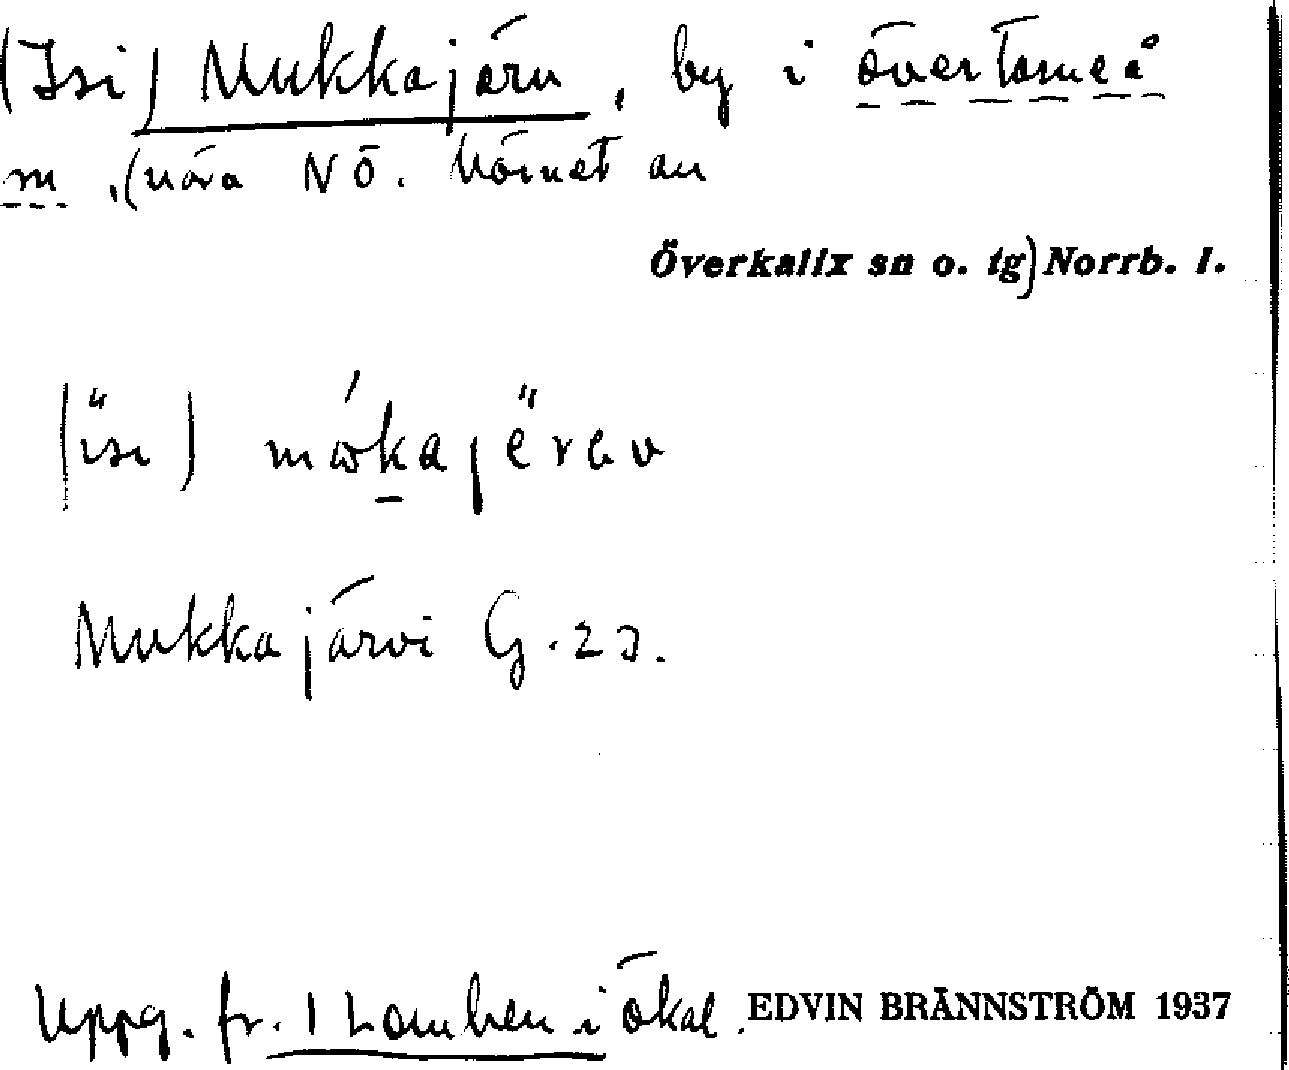 (Isi) Mukkajärv, by i Övertorneå
sn, (nära NÖ. hörnet av
Överkalix sn o. tg) Norrb. l.
Mukkajärvi G.
Uppg. fr. i Ökal. EDVIN BRÄNNSTRÖM 1937